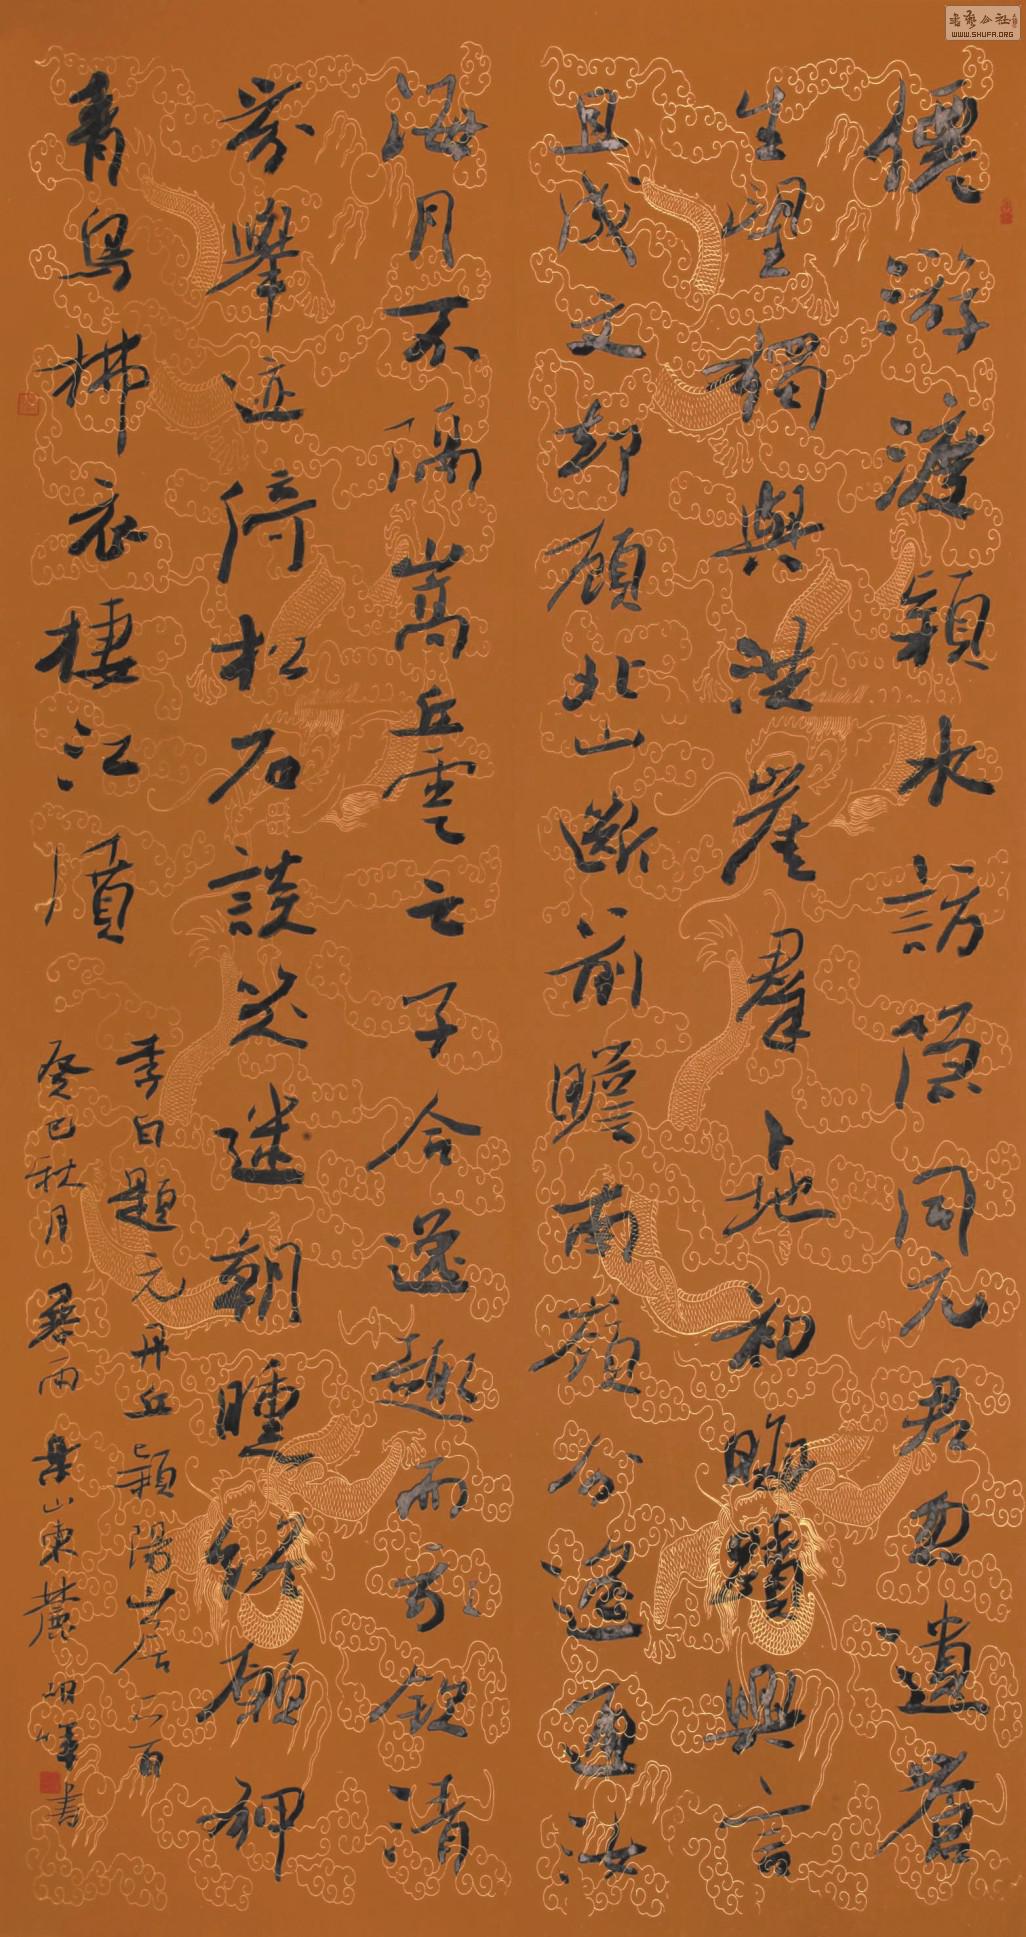 僊游渡穎水訪隐同元君忽遺蒼
生望獨與洪崖羣卜地初晦蹟興言
且成文却顧北山斷前瞻南嶺分遥通汝
海月不隔嵩丘雲之子合逸趣而我欽清
芬舉迹倚松石談笑迷朝曛終願狎
青鳥拂衣棲江濆
李白題元丹丘穎陽山居一首
癸巳秋月暮雨岳山東麓書
WWW.SHUFA.ORG